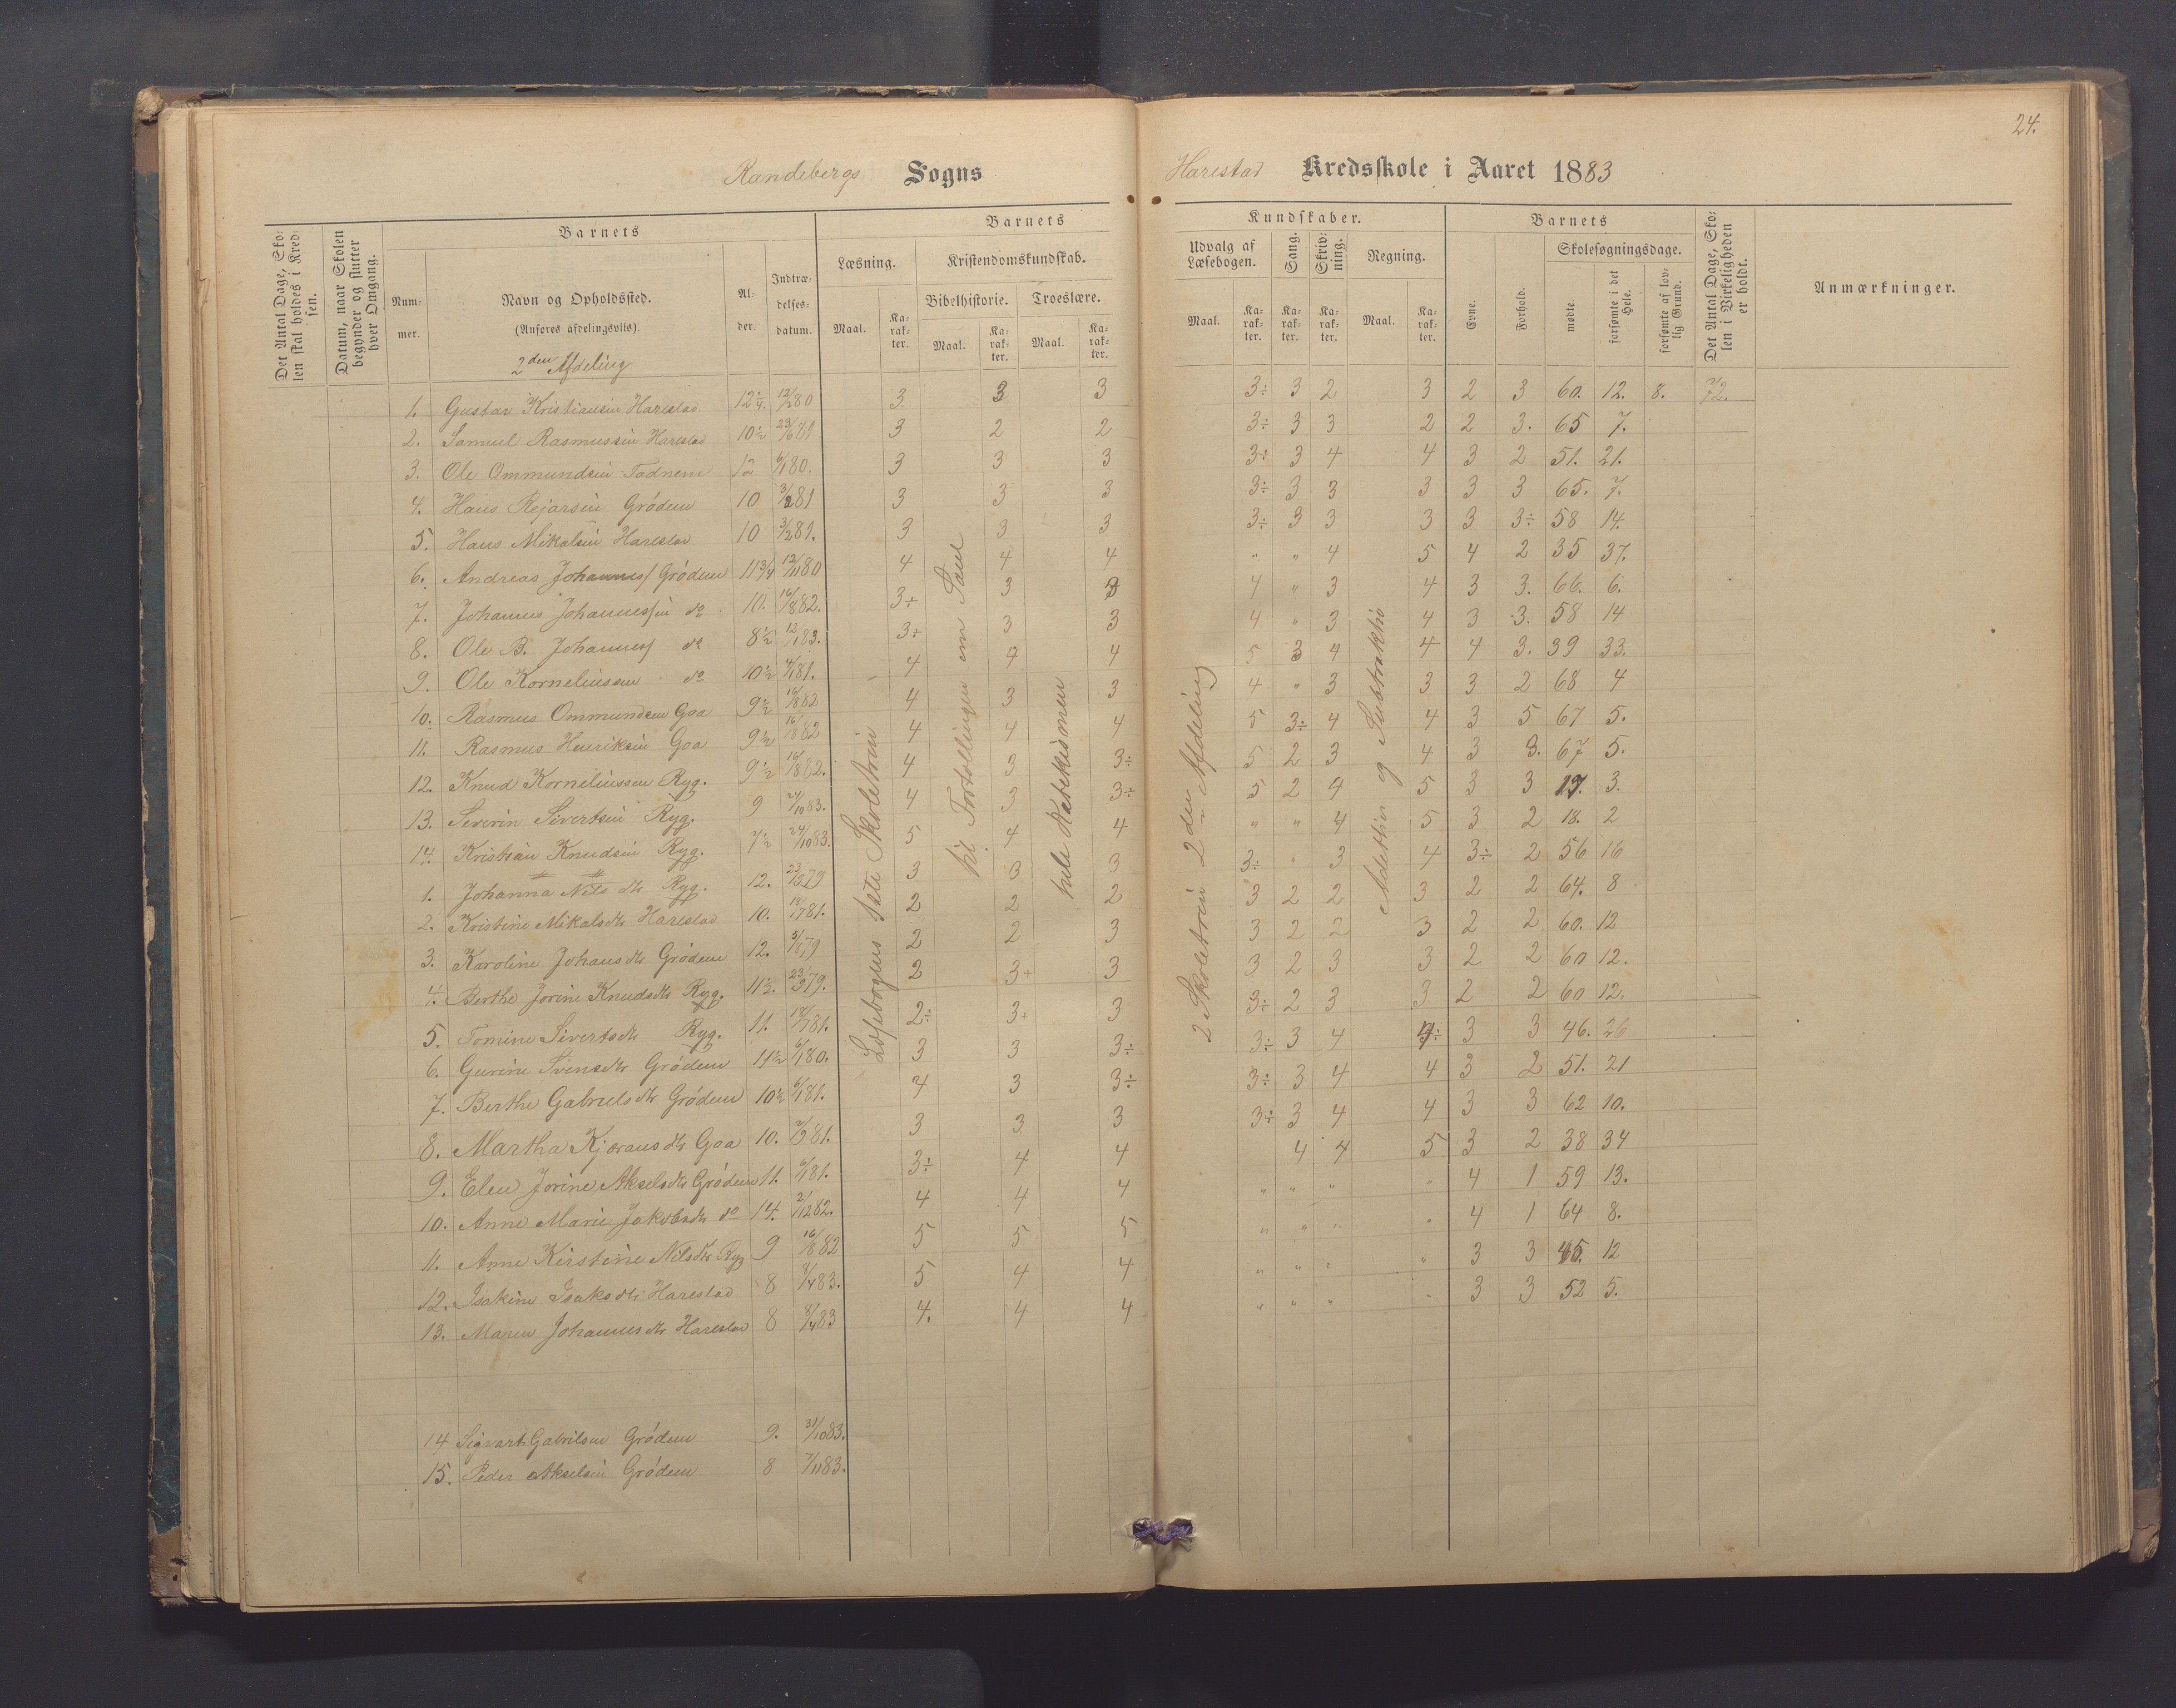 24.
Randebergs Sogns
Harestad Kredsskole i Aaret 1883
Det Antal Dage, Skolen skal holdes i Kredsen.
Datum, naar Skolen begynder og slutter hver Omgang.
Barnets
Nummer.
Navn og Opholdssted.
(Anføres afdelingsvis).
2den Afdeling
Alder.
Indtrædelsesdatum.
Barnets
Læsning.
Maal.
Karakter.
Kristendomskundskab.
Bibelhistorie.
Maal.
Karakter.
Troeslære.
Maal.
Karakter.
Kundskaber.
Udvalg af Læsebogen.
Maal.
Karakter.
Sang.
Karakter.
Skrivning.
Karakter.
Regning.
Maal.
Karakter.
Barnets
Evne.
Forhold.
Skolesøgningsdage.
mødte.
forsømte i det Hele.
forsømte af lovlig Grund.
Det Antal Dage, Skolen i Virkeligheden er holdt.
Anmærkninger.
1. Gustav Kristiansen Harestad 12 1/4. 12/2 80 3 3 3 3÷ 3 2 3 2 3 60. 12. 8. 72.
2. Samuel Rasmussen Harestad 10 1/2 23/6 81 3 2 2 3÷ 3 3 2 2 3. 65 7.
3. Ole Ommundsen Todnem 12 6/1 80. 3 3 3 3÷ 3 4 4 3 2 51. 21.
4. Hans Rejarsen Grødem 10 3/2 81 3 3 3 3÷ 3 3 3 3 3 65. 7.
5. Hans Mikalsen Harestad 10 3/2 81. 3 3 3 3÷ 3 3 3 3 3÷ 58 14.
6. Andreas Johannes/ Grødem 11 3/4 12/11 80 4 4 4 " " 4 5 4 2 35 37.
7. Johannes Johannessen do 10. 16/8 82. 3÷ 3 3 4 " 3 4 3 3. 66. 6.
8. Ole B. Johannes/ do 8 1/2 12/1 83. 3÷ 3 3 4 " 3 4 3 3. 58 14
9. Ole Korneliussen do 10 1/2 4/1 81. 4 4 4 5 3 4 4 4 3. 39 33.
10. Rasmus Ommundsen Goa 9 1/2 16/8 82 4 3 3 4 " 3 3 3 2 68 4
11. Rasmus Henriksen Goa 9 1/2 16/8 82 4 4 4 5 3÷ 4 4 3 5 67 5.
12. Knud Korneliussen Ryg. 9 1/2 16/8 82. 4 3 3÷ 5 2 3 4 3 3. 67 5.
13. Severin Sivertsen Ryg. 9 24/10 83. 4 3 3÷ 5 2 4 5 3 3 17. 3.
14. Kristian Knudsen Ryg. 7 1/2 24/10 83. 5 4 4 " " 4 5 3 2 18. 2
1. Johanna Nilsdtr Ryg. 12. 23/3 79 3 3 3 3÷ " 3 4 3÷ 2 56 16
2. Kristine Mikalsdtr Harestad 10. 18/7 81. 2 2 2 3 2 2 3 2 2 64. 8
3. Karoline Johansdtr Grødem 12. 5/3 79 2 2 3 3 2 2 3 2 2 60. 12
4. Berthe Jorine Knudsdtr Ryg. 11 1/2. 23/3 79. 2 3+ 3 3 2 3 3 2 2 60 12.
5. Tomine Sivertsdtr Ryg. 11. 18/7 81. 2÷ 3+ 3 3÷ 2 3 3 2 2 60 12.
6. Gurine Svensdtr Grødem 11 1/2 6/1 80. 3 3 3÷ 3÷ 3 4 4÷ 3 3 46. 26
7. Berthe Gabrielsdtr Grødem 10 1/2 6/1 81. 4 3 3÷ 3÷ 3 4 4 3 2 51. 21
8. Martha Kjøransdtr Goa 10. 2/3 81. 3 3 3 3÷ 3 4 4 3 3 62 10.
9. Elen Jorine Akselsdtr Grødem 11. 6/1 81. 3÷ 4 4 4 4 5 3 2 38 34
10. Anne Marie Jakobsdtr do 14. 2/12 82. 4 4 4 " " " " 4 1 59 13.
11. Anne Kirstine Nilsdtr Ryg 9 16/8 82 5 5 5 " " " " 4 1 64 8.
12. Isakine Isaksdtr Harestad 8 3/4 83. 5 4 4 " " " " 3 3 45. 12
13. Maren Johannesdtr Harestad 8 4/4 83 4. 4 4 " " " " 3 3 52 5.
14 Sigvart Gabrilsen Grødem 9. 31/10 83.
15. Peder Akselsen Grødem 8 7/11 83.
Læsebogens 1ste Skoletrin
til Fortællingen om Saul
hele Katekismen
2 Skoletrin 2den Afdeling
Addition og Subtraktio